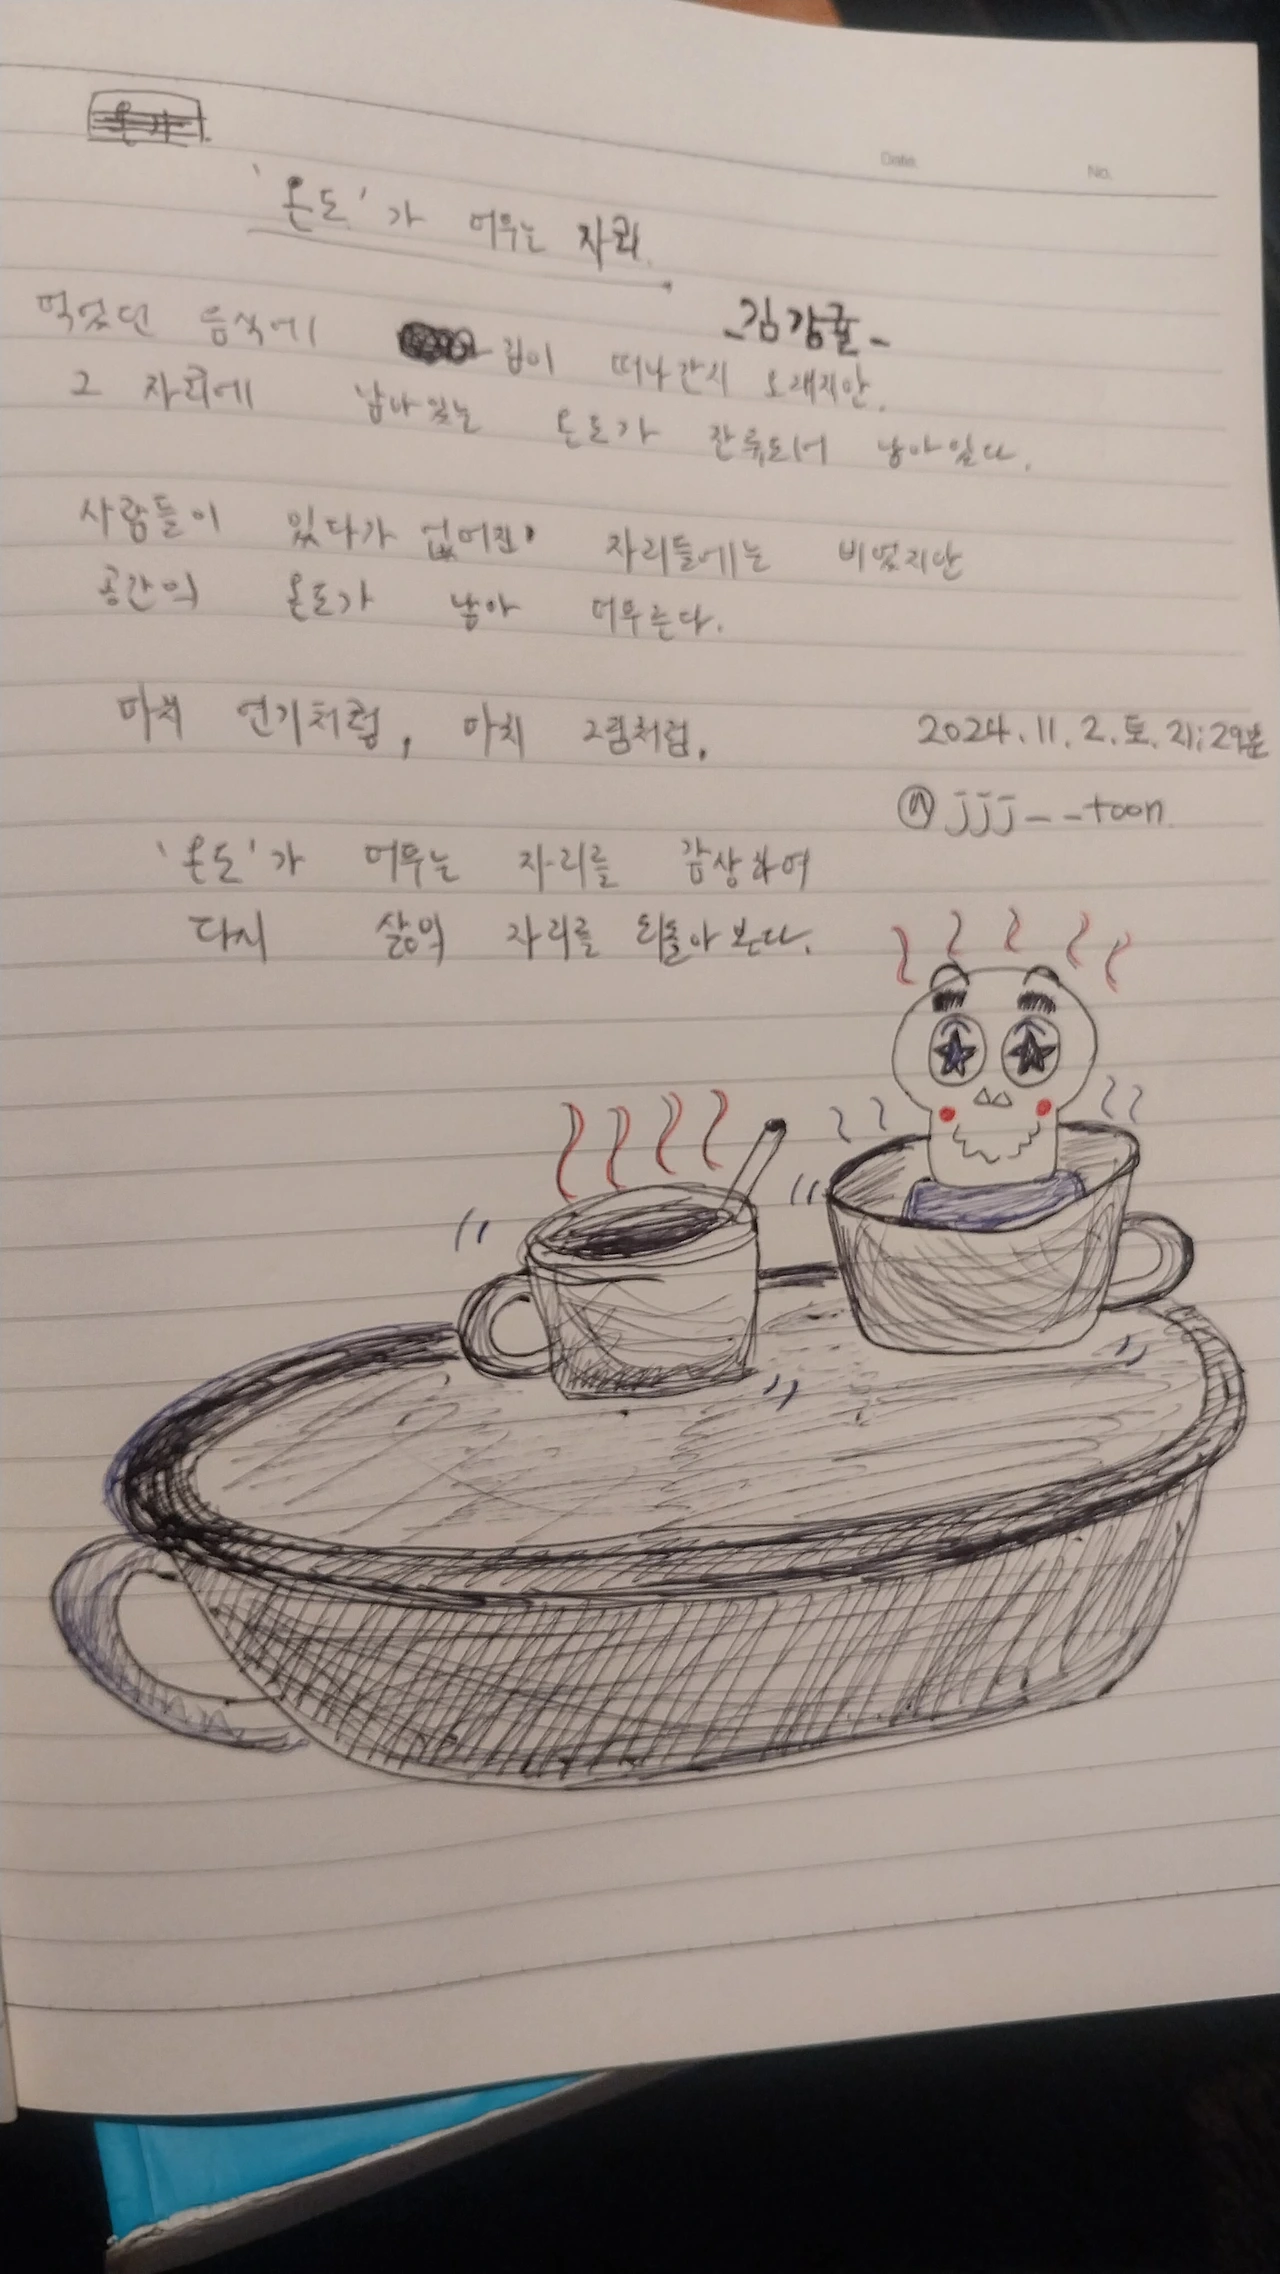 Date.
No.
'온도'가 머무는 자리.
-김강귤-
먹었던 음식에 김이 떠나간지 오래지만.
그 자리에 남아있는 온도가 잔류되어 남아있다.
사람들이 있다가 없어진 자리들에는 비었지만
공간의 온도가 남아 머무른다.
마치 연기처럼, 마치 그림처럼.
2024.11.2.토.21:29분
@jjj--toon
'온도'가 머무는 자리를 감상하여
다시 삶의 자리를 되돌아 본다.